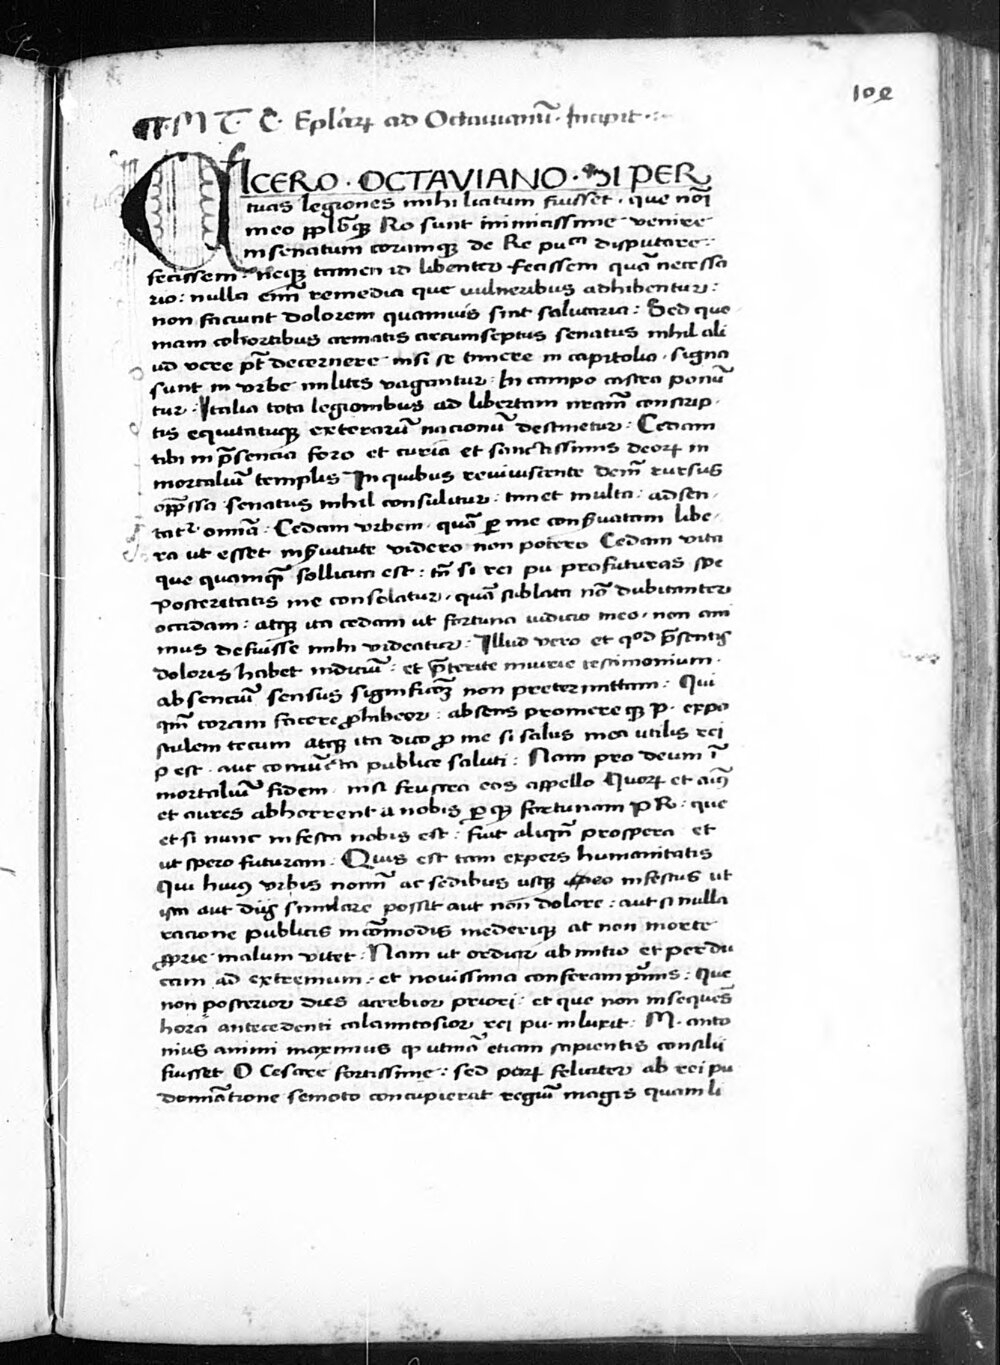 102
M T C. Eplarꝝ ad Octauianū. Incipit.
CICERO. OCTAVIANO. SI PER
tuas legiones mihi licitum fuisset. que noī
meo pplōqꝫ Ro sunt inimicissime venire
in senatum corumqꝫ de Re puᶜᵃ disputare:
fecissem: neqꝫ tamen id libenter fecissem quā necessa
rio: nulla enī remedia que vulneribus adhibentur:
non faciunt dolorem quamuis sint salutaria: Sed quo
niam cohortibus armatis circumseptus senatus nihil ali
ud vere pt̄ decernere nisi se timere in capitolio. signa
sunt in vrbe milites vagantur: In campo castra ponū
tur. Italia tota legionibus ad libertam nr̄am conscrip.
tis equitatuqꝫ exterarū nacionū destinetur: Cedam
tibi in p̄sencia foro et curia et sanctissimis deorꝝ in
mortaliū templis In quibus reviuiscente dem̄ rursus
opp̄ssa senatus nihil consulitur: timet multa: adsen.
tatʳ omīa: Cedam vrbem. quā ꝑ me conſ̄uatam libe.
ra ut esset in ſ̄uitute videro non potero Cedam vita
que quamqꝫ sollicita est: tn̄ si rei pu profuturas spe
posteritatis me consolatur. quā sublata nō dubitanter
occidam: atqꝫ ita cedam ut fortuna iudicio meo. non ani
mus defuisse mihi videatur: Illud vero et qod p̄sentis
doloris habet indiciū: et p̄terite iniurie testimonium.
absenciū sensus significacō non pretermittam: Qui
qm̄ coram facere ꝓhibeor: absens promereqꝫ p. expo
stulem tecum atqꝫ ita dico ꝓ me si salus mea utilis rei
p est. aut coniūcta publice saluti: Nam pro deum ī
mortaliū fidem. nisi frustra eos appello Quorꝝ et aīꝯ
et aures abhorrent a nobis ꝑqꝫ fortunam P R: que
et si nunc infesta nobis est: fuit aliqn̄ prospera et
ut spero futuram: Quis est tam expers humanitatis
Qui huiꝯ vrbis nomī ac sedibus usqꝫ adeo infestus ut
ista aut diis similare possit aut non dolore: aut si nulla
racione publicis incōmodis mederiqꝫ at non morte
ꝓprie malum vitet: Nam ut ordiar ab initio et perdu
cam ad extremum. et novissima conferam pmis: Que
non posterior dies acerbior priori: et que non insequēs
hora antecedenti calamitosior rei pu. inluxit: M. anto
nius animi maximus qꝫ utinā etiam sapientis consilii
fuisset O Cesare fortissime: sed parꝝ feliciter ab rei pu
domīatione semoto concupierat regiū magis quam li